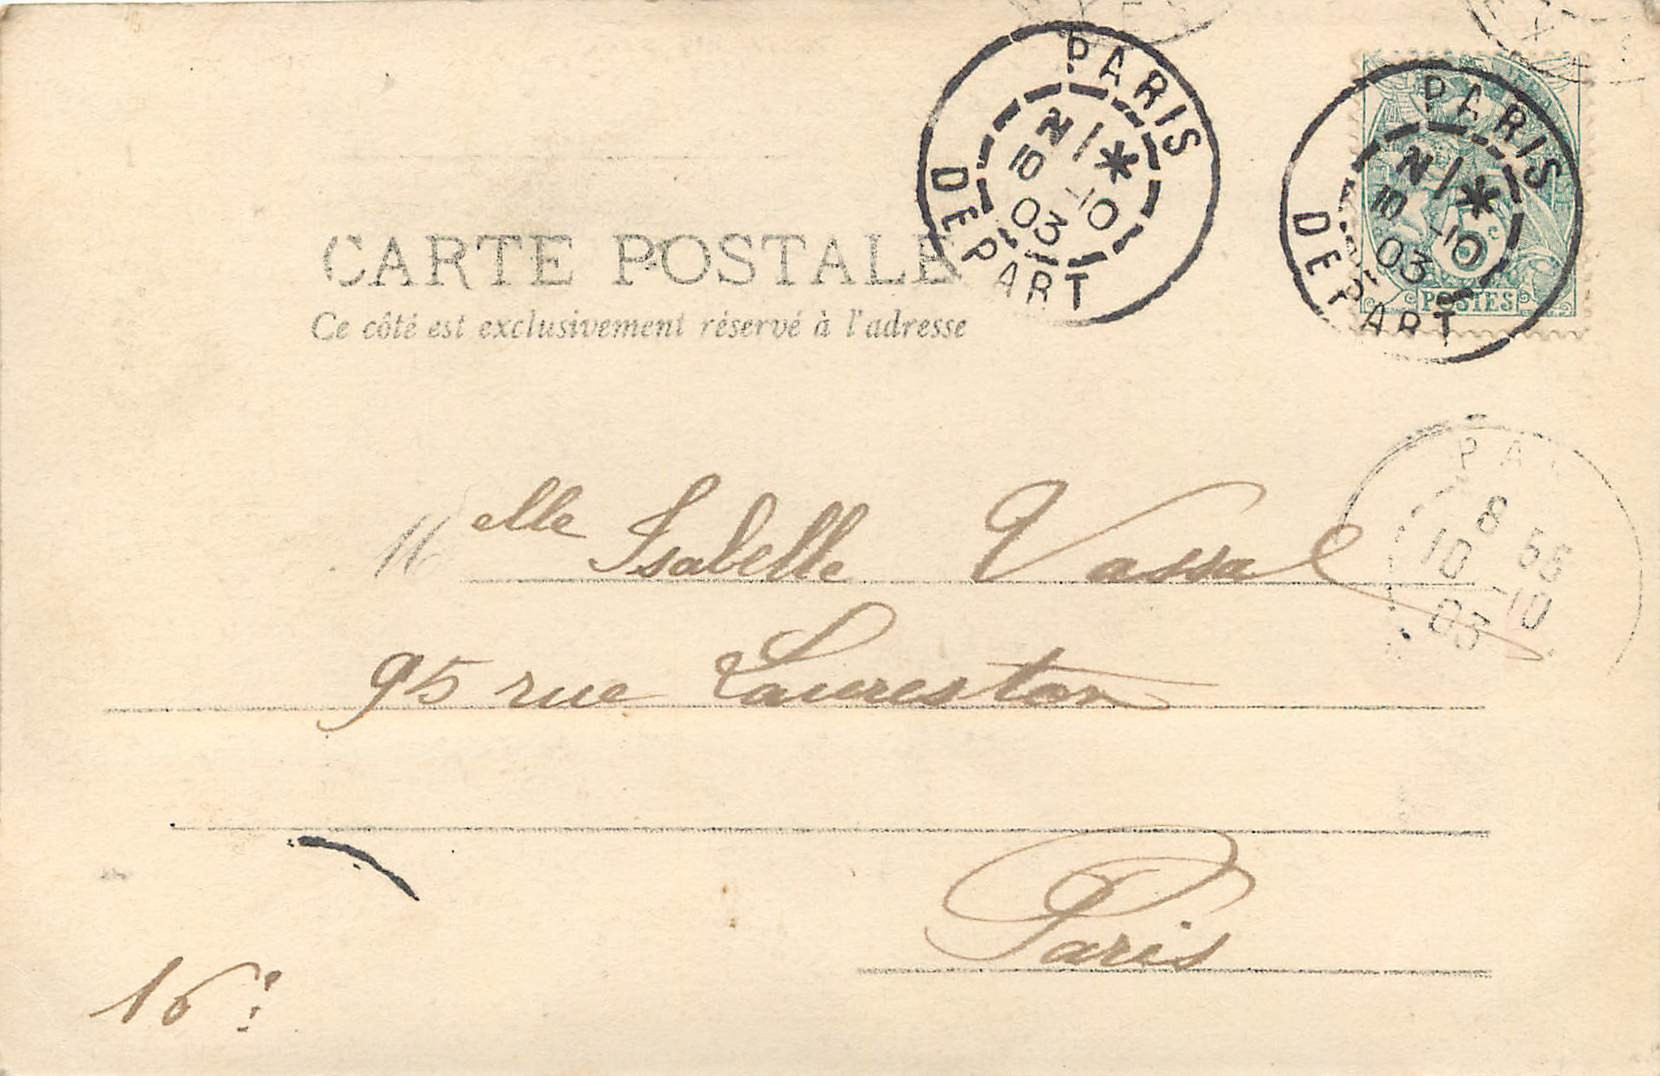 PARIS
2/*
10 -10
03
DEPART
PARIS
2/*
10 -10
03
DEPART
5c
POSTES
CARTE POSTALE
Ce côté est exclusivement réservé à l'adresse
8 55
10 -10
03
Melle Isabelle Vassal
95 rue Laureston
Paris
16e